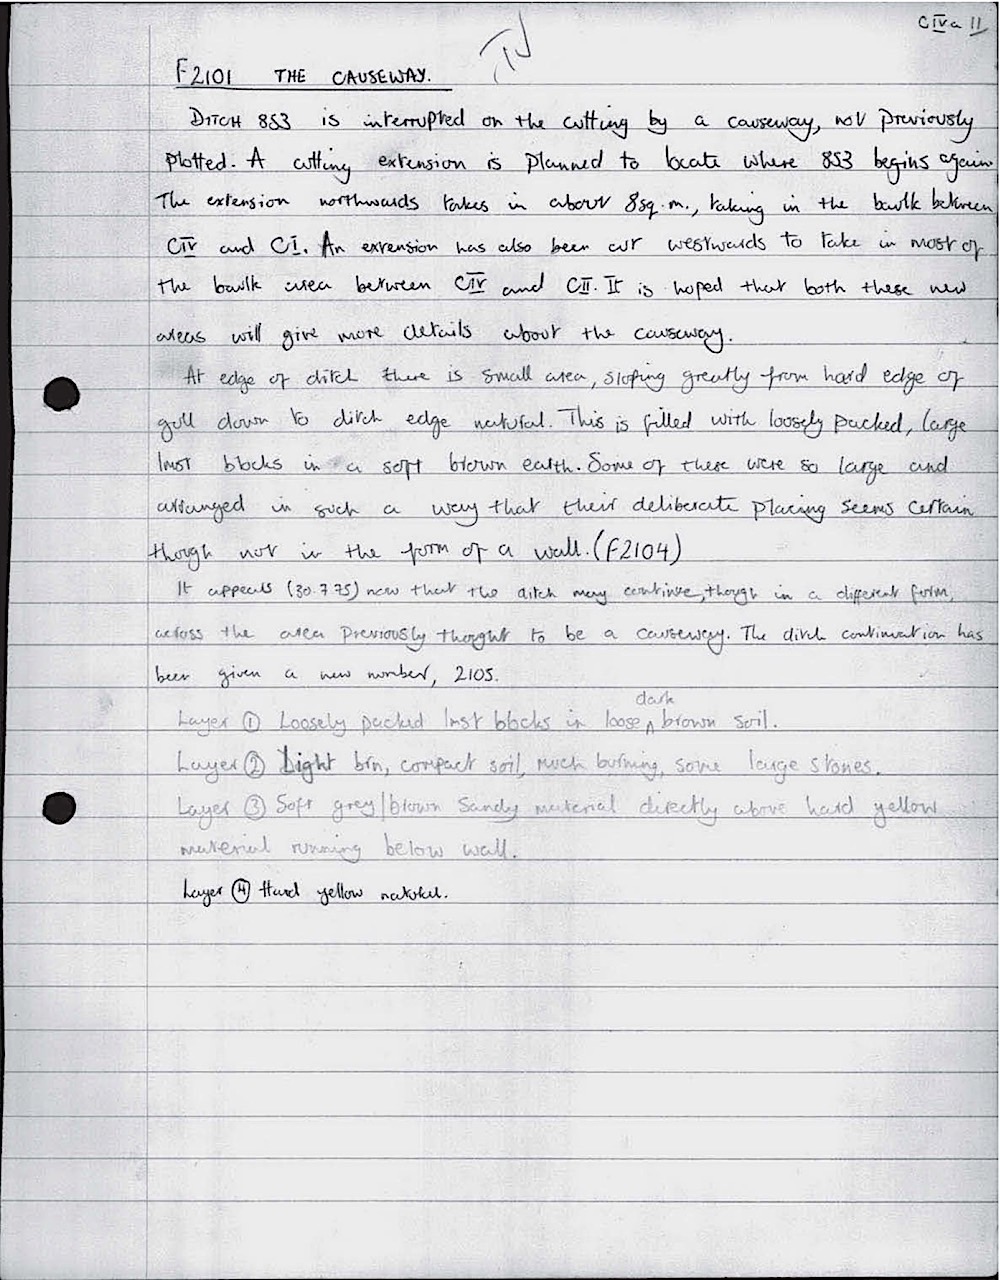 CIVa 11
IV
F2101 THE CAUSEWAY.
DITCH 853 is interrupted on the cutting by a causeway, not previously
plotted. A cutting extension is planned to locate where 853 begins again
The extension northwards takes in about 8sq.m., taking in the baulk between
CIV and CI. An extension has also been cut westwards to take in most of
the baulk area between CIV and CII. It is hoped that both these new
areas will give more details about the causeway.
At edge of ditch there is small area, sloping greatly from hard edge of
gull down to ditch edge natural. This is filled with loosely packed, large
lmst blocks in a soft brown earth. Some of these were so large and
arranged in such a way that their deliberate placing seems certain
though not in the form of a wall. (F2104)
It appears (30.7.75) now that the ditch may continue, though in a different form,
across the area previously thought to be a causeway. The ditch continuation has
been given a new number, 2105.
Layer ① Loosely packed lmst blocks in loose ^ dark brown soil.
Layer ② Light brn, compact soil, much burning, some large stones.
Layer ③ Soft grey/brown sandy material directly above hard yellow
material running below wall.
Layer ④ Hard yellow natural.